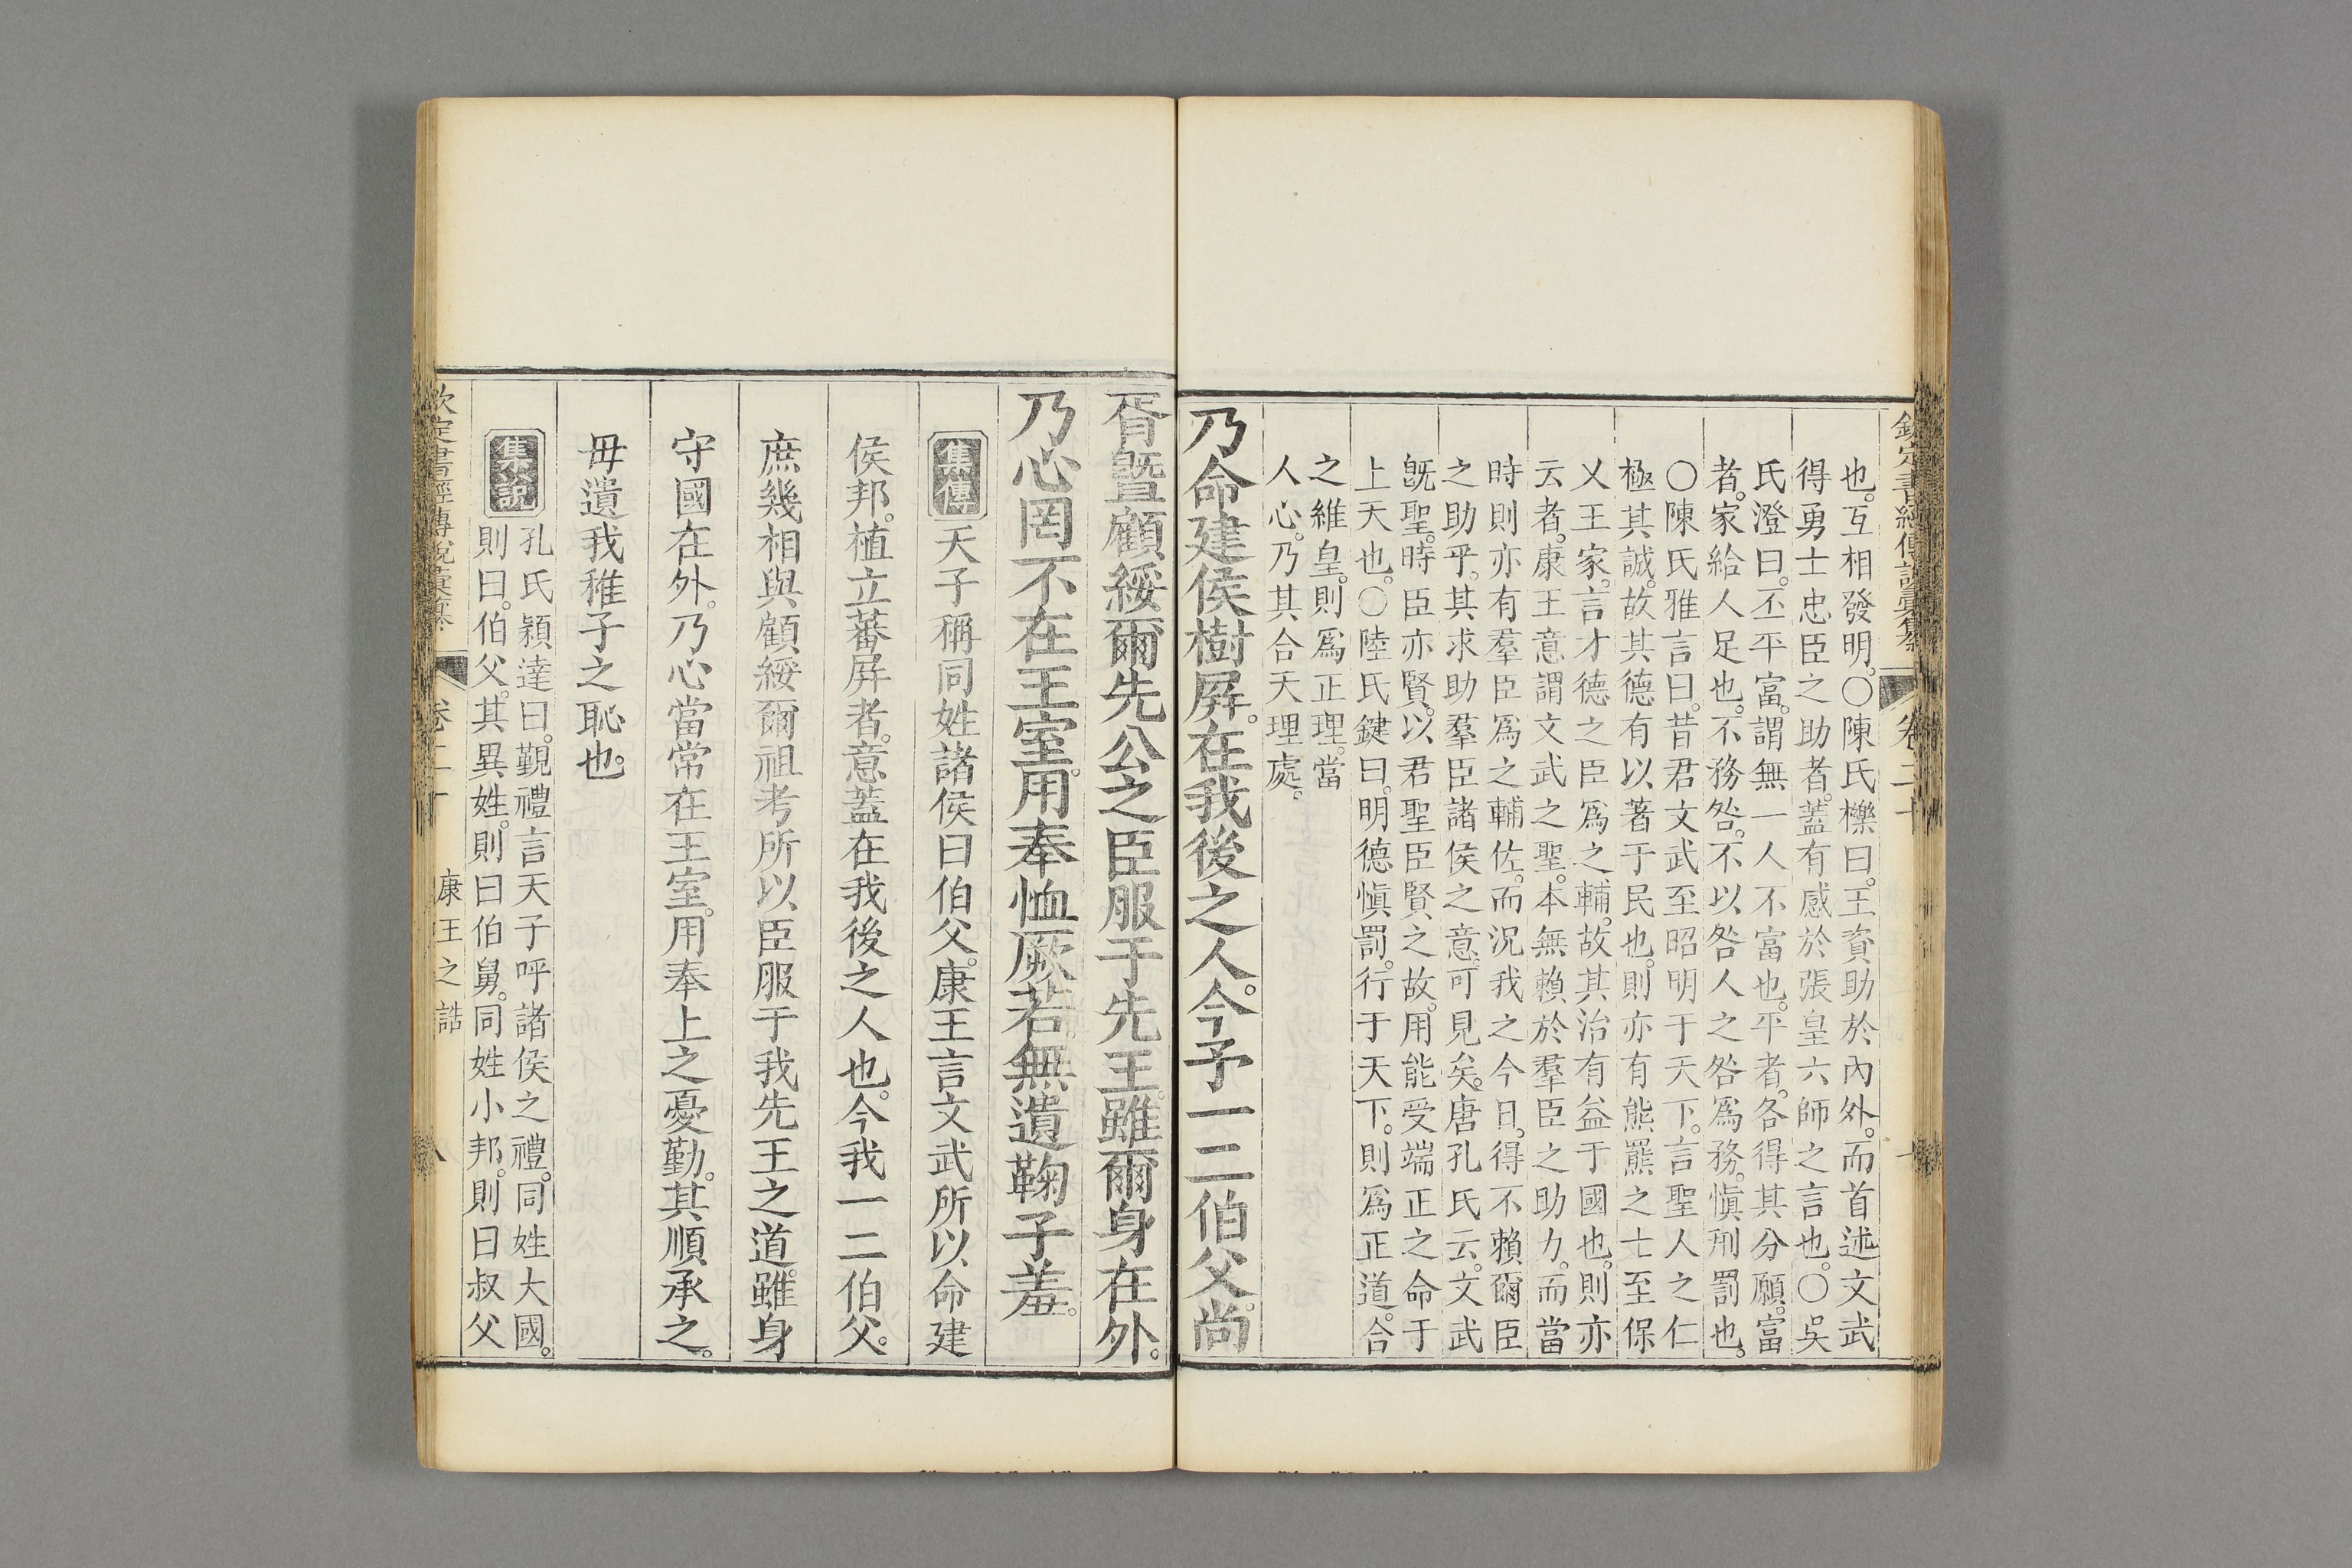 欽定書經傳說彙纂 卷二十
也。互相發明。〇陳氏櫟曰。王資助於內外。而首述文武
得勇士忠臣之助者。蓋有感於張皇六師之言也。〇吳
氏澄曰。丕平富。謂無一人不富也。平者。各得其分願。富
者。家給人足也。不務咎。不以咎人之咎爲務。愼刑罰也。
〇陳氏雅言曰。昔君文武至昭明于天下。言聖人之仁
極其誠。故其德有以著于民也。則亦有熊羆之士至保
乂王家。言才德之臣爲之輔。故其治有益于國也。則亦
云者。康王意謂文武之聖。本無賴於羣臣之助力。而當
時則亦有羣臣爲之輔佐。而況我之今日。得不賴爾臣
之助乎。其求助羣臣諸侯之意。可見矣。唐孔氏云。文武
旣聖。時臣亦賢。以君聖臣賢之故。用能受端正之命于
上天也。〇陸氏鍵曰。明德愼罰。行于天下。則爲正道。合
之維皇。則爲正理。當
人心。乃其合天理處。
乃命建侯樹屛。在我後之人。今予一二伯父。尚
胥曁顧綏爾先公之臣服于先王。雖爾身在外。
乃心罔不在王室。用奉恤厥若。無遺鞠子羞。
集傳 天子稱同姓諸侯曰伯父。康王言文武所以命建
侯邦。植立蕃屛者。意蓋在我後之人也。今我一二伯父。
庶幾相與顧綏爾祖考所以臣服于我先王之道。雖身
守國在外。乃心當常在王室。用奉上之憂勤。其順承之。
毋遺我稚子之恥也。
集說 孔氏穎達曰。覲禮言天子呼諸侯之禮。同姓大國。
則曰。伯父。其異姓。則曰伯舅。同姓小邦。則曰叔父
欽定書經傳說彙纂 卷二十 康王之誥 八